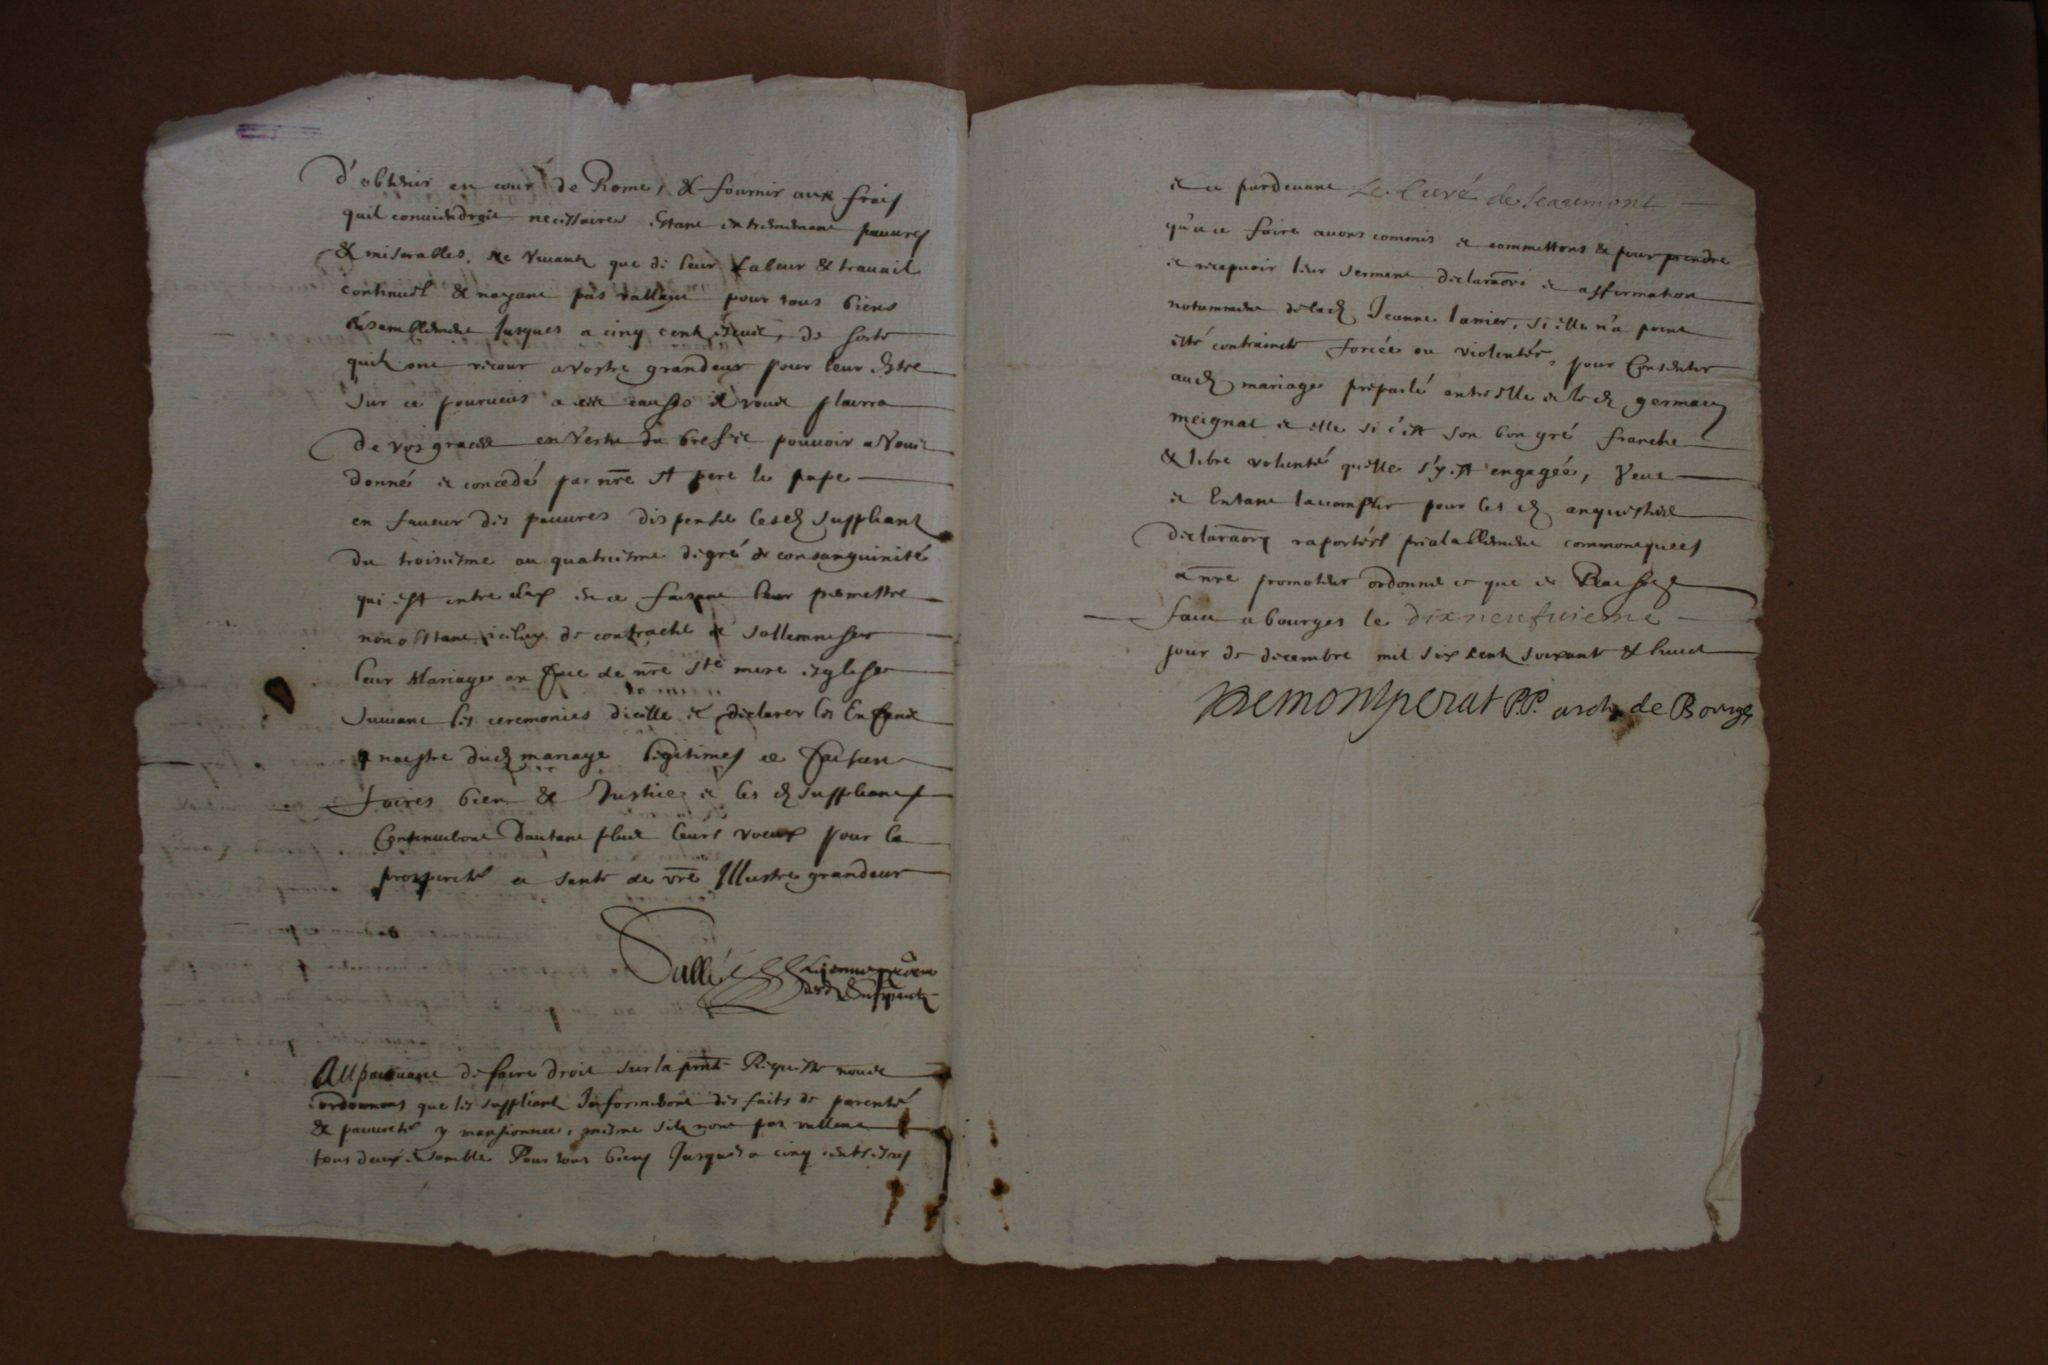 d'obtenir en cour de Rome, & fournir aux frais
quil conviendroit necessaires estant extremement pauvres
& miserables, ne vivantz que de leur labeur & travail
continuel & nayant pas vallant pour tous biens
ensamblement jusques a cinq centz escus, de sorte
quilz ont recour a vostre grandeur pour leur estre
sur ce pourveus a ces causes il vous plairra
de vos graces en vertu du bref et pouvoir a vous
donné et concedé par nre st pere le pape
en faveur des pauvres dispenser lesd suppliantz
du troisiesme au quatriesme degré de consanguinité
qui est entre eux en ce faisant leur permettre
non obstant iceluy de contracter et sollemniser
leur mariage en face de nre ste mere esglise
suivant les ceremonies dicelle et declarer les enfans
a naistre dud mariage legitimes ce faisant
faires bien & justice et les d supplians
continueront dautant plus leurs voeux pour la
prosperité et santé de vre illustre grandeur
Sallé
desd suppliantz
Auparavant de faire droit sur la pnte Requeste nous
ordonnons que les suppliantz informeront des faits de parenté
& pauvreté y mansionnee, mesme silz nont pas vallant
tous deux ensamble pour tous biens jusques a cinq cents escus
et ce pardevant Le Curé de leaumont
qu'a ce faire avons commis et commettons & pour prendre
et recepvoir leur serment declaraōn et affirmation
notamment de lad Jeanne lanier, si elle n'a point
esté contrainte forcée ou violentée, pour consentir
aud mariage preparlé entre elle et led germain
meignat et elle si c'est son bon gré franche
& libre volonté quelle s'y est engagée, veut
et entant laccomplir pour les d enquestes
declaraōns raportées prealablement communiquees
a nre promoteur ordonné ce que de Raison
faict a bourges le dixneufvieme
jour de decembre mil six centz soixante & huict
Demontperat PP. arch de Bourges